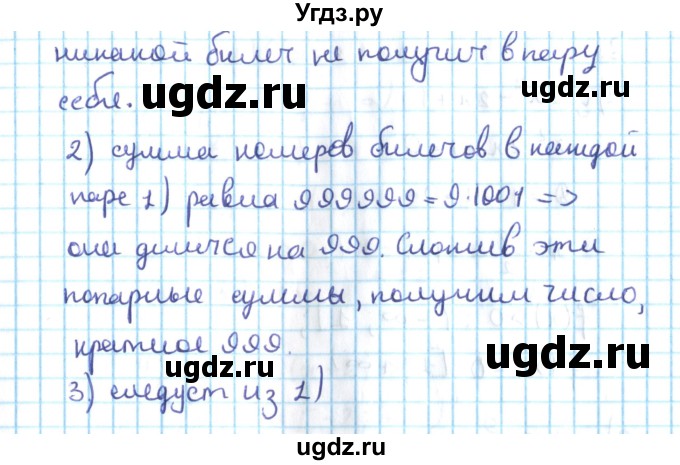 Угдз.ру
никакой билет не получит в пару
себя.
ugdz.ru ugdz.ru
2) сумма номеров билетов в каждой
паре 1) равна 999999=9·1001 =>
она делится на 999. Сложив эти
попарные суммы, получим число,
кратное 999.
ugdz.ru ugdz.ru
3) следует из 1)
ugdz.ru